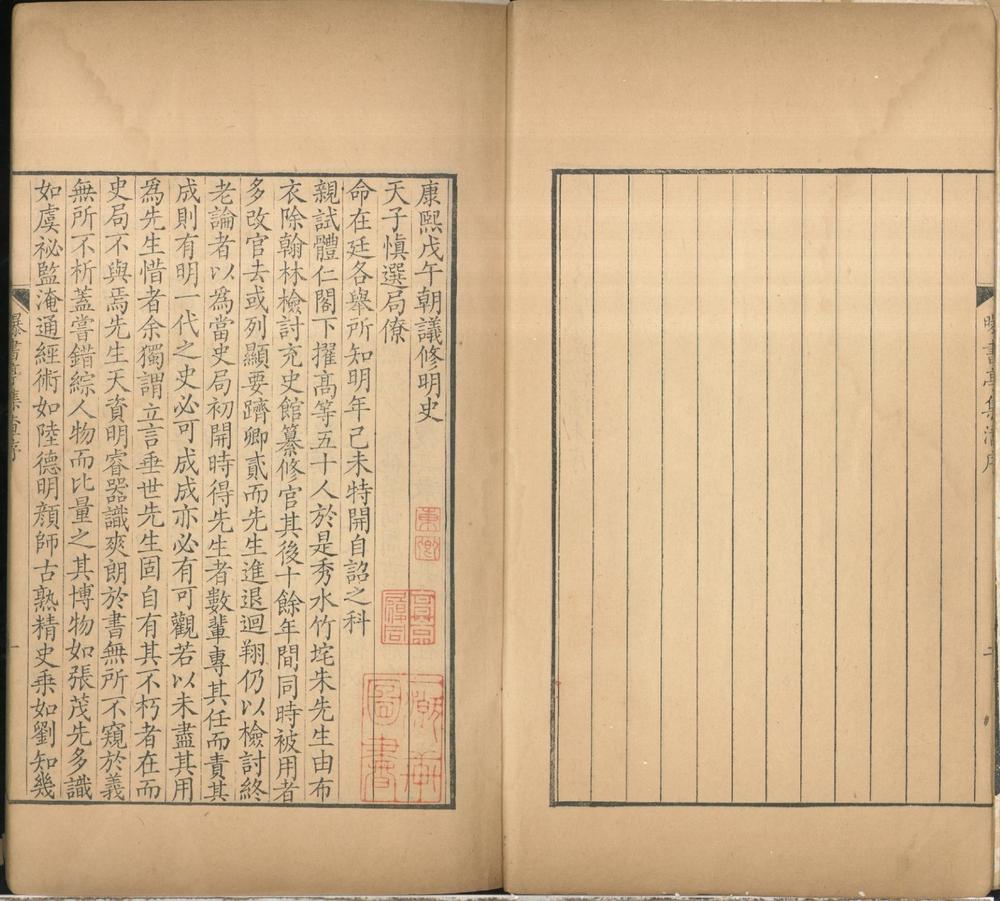 康熙戊午朝議修明史
天子慎選局僚
命在廷各舉所知明年己未特開自詔之科
親試體仁閣下擢高等五十人於是秀水竹垞朱先生由布
衣除翰林檢討充史館纂修官其後十餘年間同時被用者
多改官去或列顯要躋卿貳而先生進退迴翔仍以檢討終
老論者以為當史局初開時得先生者數輩專其任而責其
成則有明一代之史必可成成亦必有可觀若以未盡其用
為先生惜者余獨謂立言垂世先生固自有其不朽者在而
史局不與焉先生天資明睿器識爽朗於書無所不窺於義
無所不析蓋嘗錯綜人物而比量之其博物如張茂先多識
如虞祕監淹通經術如陸德明顏師古熟精史乘如劉知幾
曝書亭集
一
曝書亭集
二